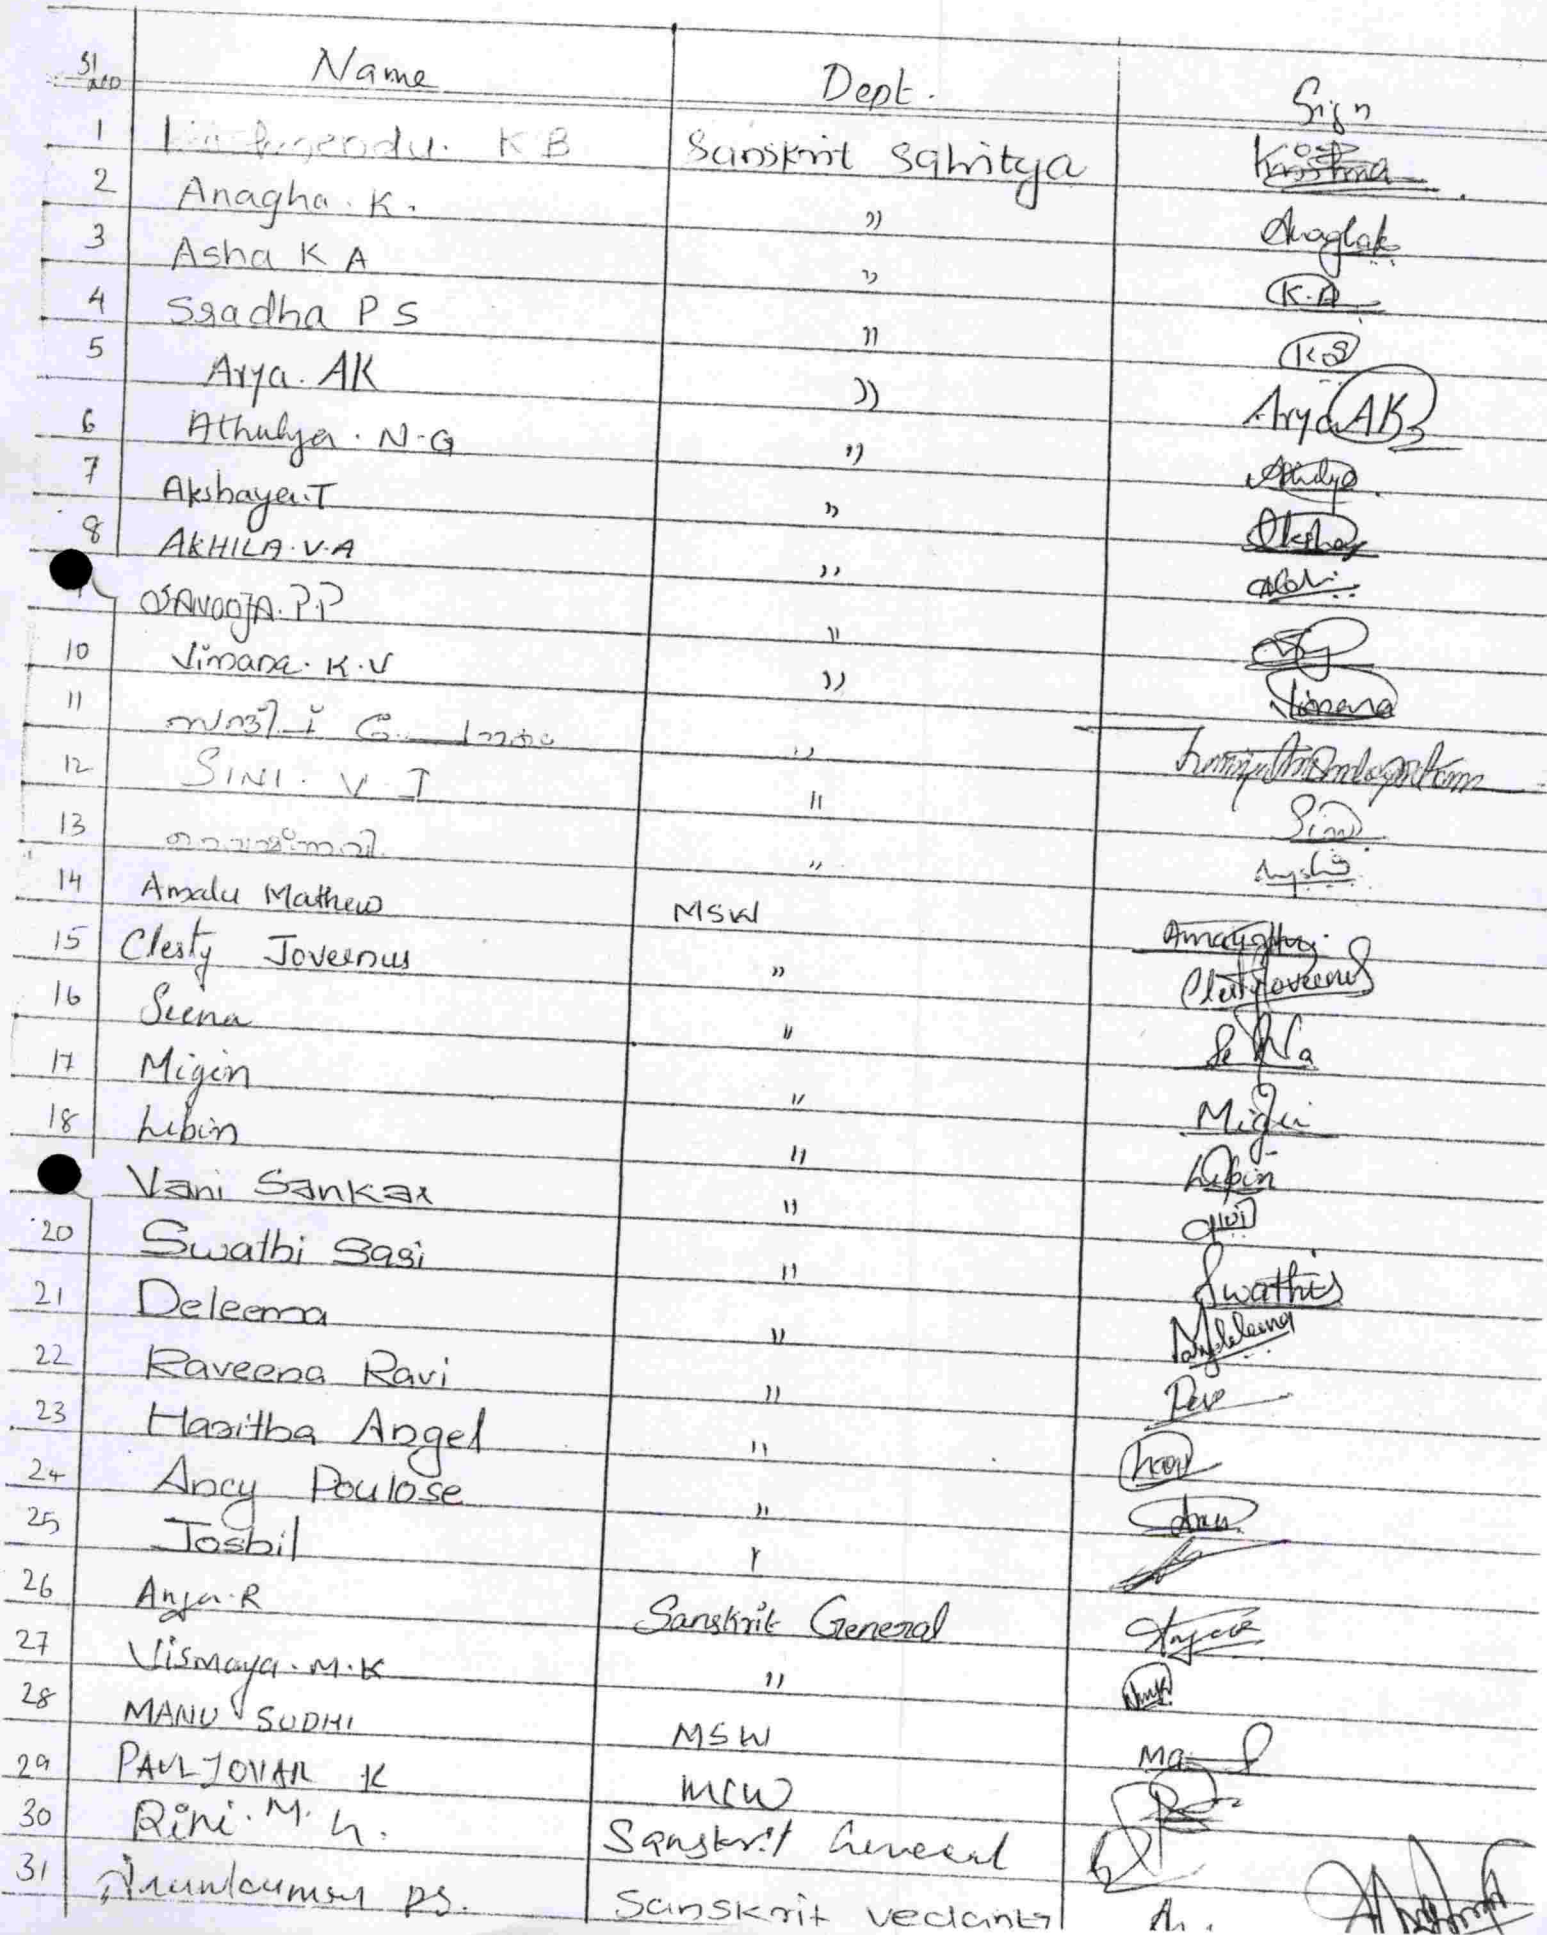 Sl no Name Dept. Sign
1 KB Sanskrit Sahitya Krishna
2 Anagha. K. " Anaghak
3 Asha K A " K.A
4 Sradha P S " KS
5 Arya. AK " Arya AK
6 Athulya. N.G " Athulya
7 Akshaya.T " Akshay
8 AKHILA.V.A "
SANOOJA. P.P "
10 Vimana. K.V " Vimana
11 "
12 SINI. V. J " Sini
13 "
14 Amalu Mathew MSW
15 Clesty Joveenus " Clestyjoveenus
16 Seena " Seena
17 Migin " Migin
18 Libin " Libin
Vani Sankar "
20 Swathi Sasi " Swathis
21 Deleema "
22 Raveena Ravi "
23 Haritha Angel "
24 Ancy Poulose "
25 Josbil "
26 Anja.R Sanskrit General
27 Vismaya.M.K " Vmk
28 MANU SUDHI MSW
29 PAUL JOVAR K MSW
30 Rini. M. Sanskrit General
31 P.S. Sanskrit vedanta